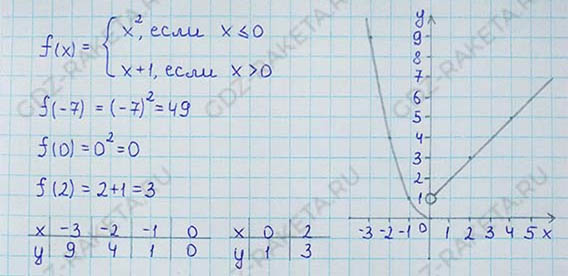 f(x) = { x², если x ≤ 0
x+1, если x > 0
f(-7) = (-7)² = 49
f(0) = 0² = 0
f(2) = 2+1 = 3
x -3 -2 -1 0
y 9 4 1 0
x 0 2
y 1 3
y
9
8
7
6
5
4
3
2
1
-3 -2 -1 0 1 2 3 4 5 x
GDZ-RAKETA.RU
GDZ-RAKETA.RU
GDZ-RAKETA.RU
GDZ-RAKETA.RU